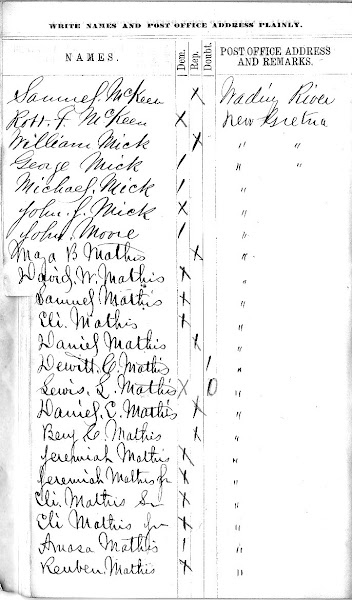 WRITE NAMES AND POST OFFICE ADDRESS PLAINLY.
NAMES. Dem. Rep. Doubt. POST OFFICE ADDRESS AND REMARKS.
Samuel McKeen x Wading River
Robt. F. McKeen x New Gretna
William Mick x " "
George Mick / " "
Michael Mick / "
John J. Mick x "
John Moore / "
Maza B Mathis x "
David W. Mathis x "
Samuel Mathis x "
Eli Mathis x "
Daniel Mathis x "
Dewitt C. Mathis / "
Lewis L. Mathis x 0 "
Daniel C. Mathis x "
Benj C. Mathis x "
Jeremiah Mathis x "
Jeremiah Mathis Jr x "
Eli Mathis Sr x "
Eli Mathis Jr x "
Amasa Mathis / "
Reuben Mathis x "